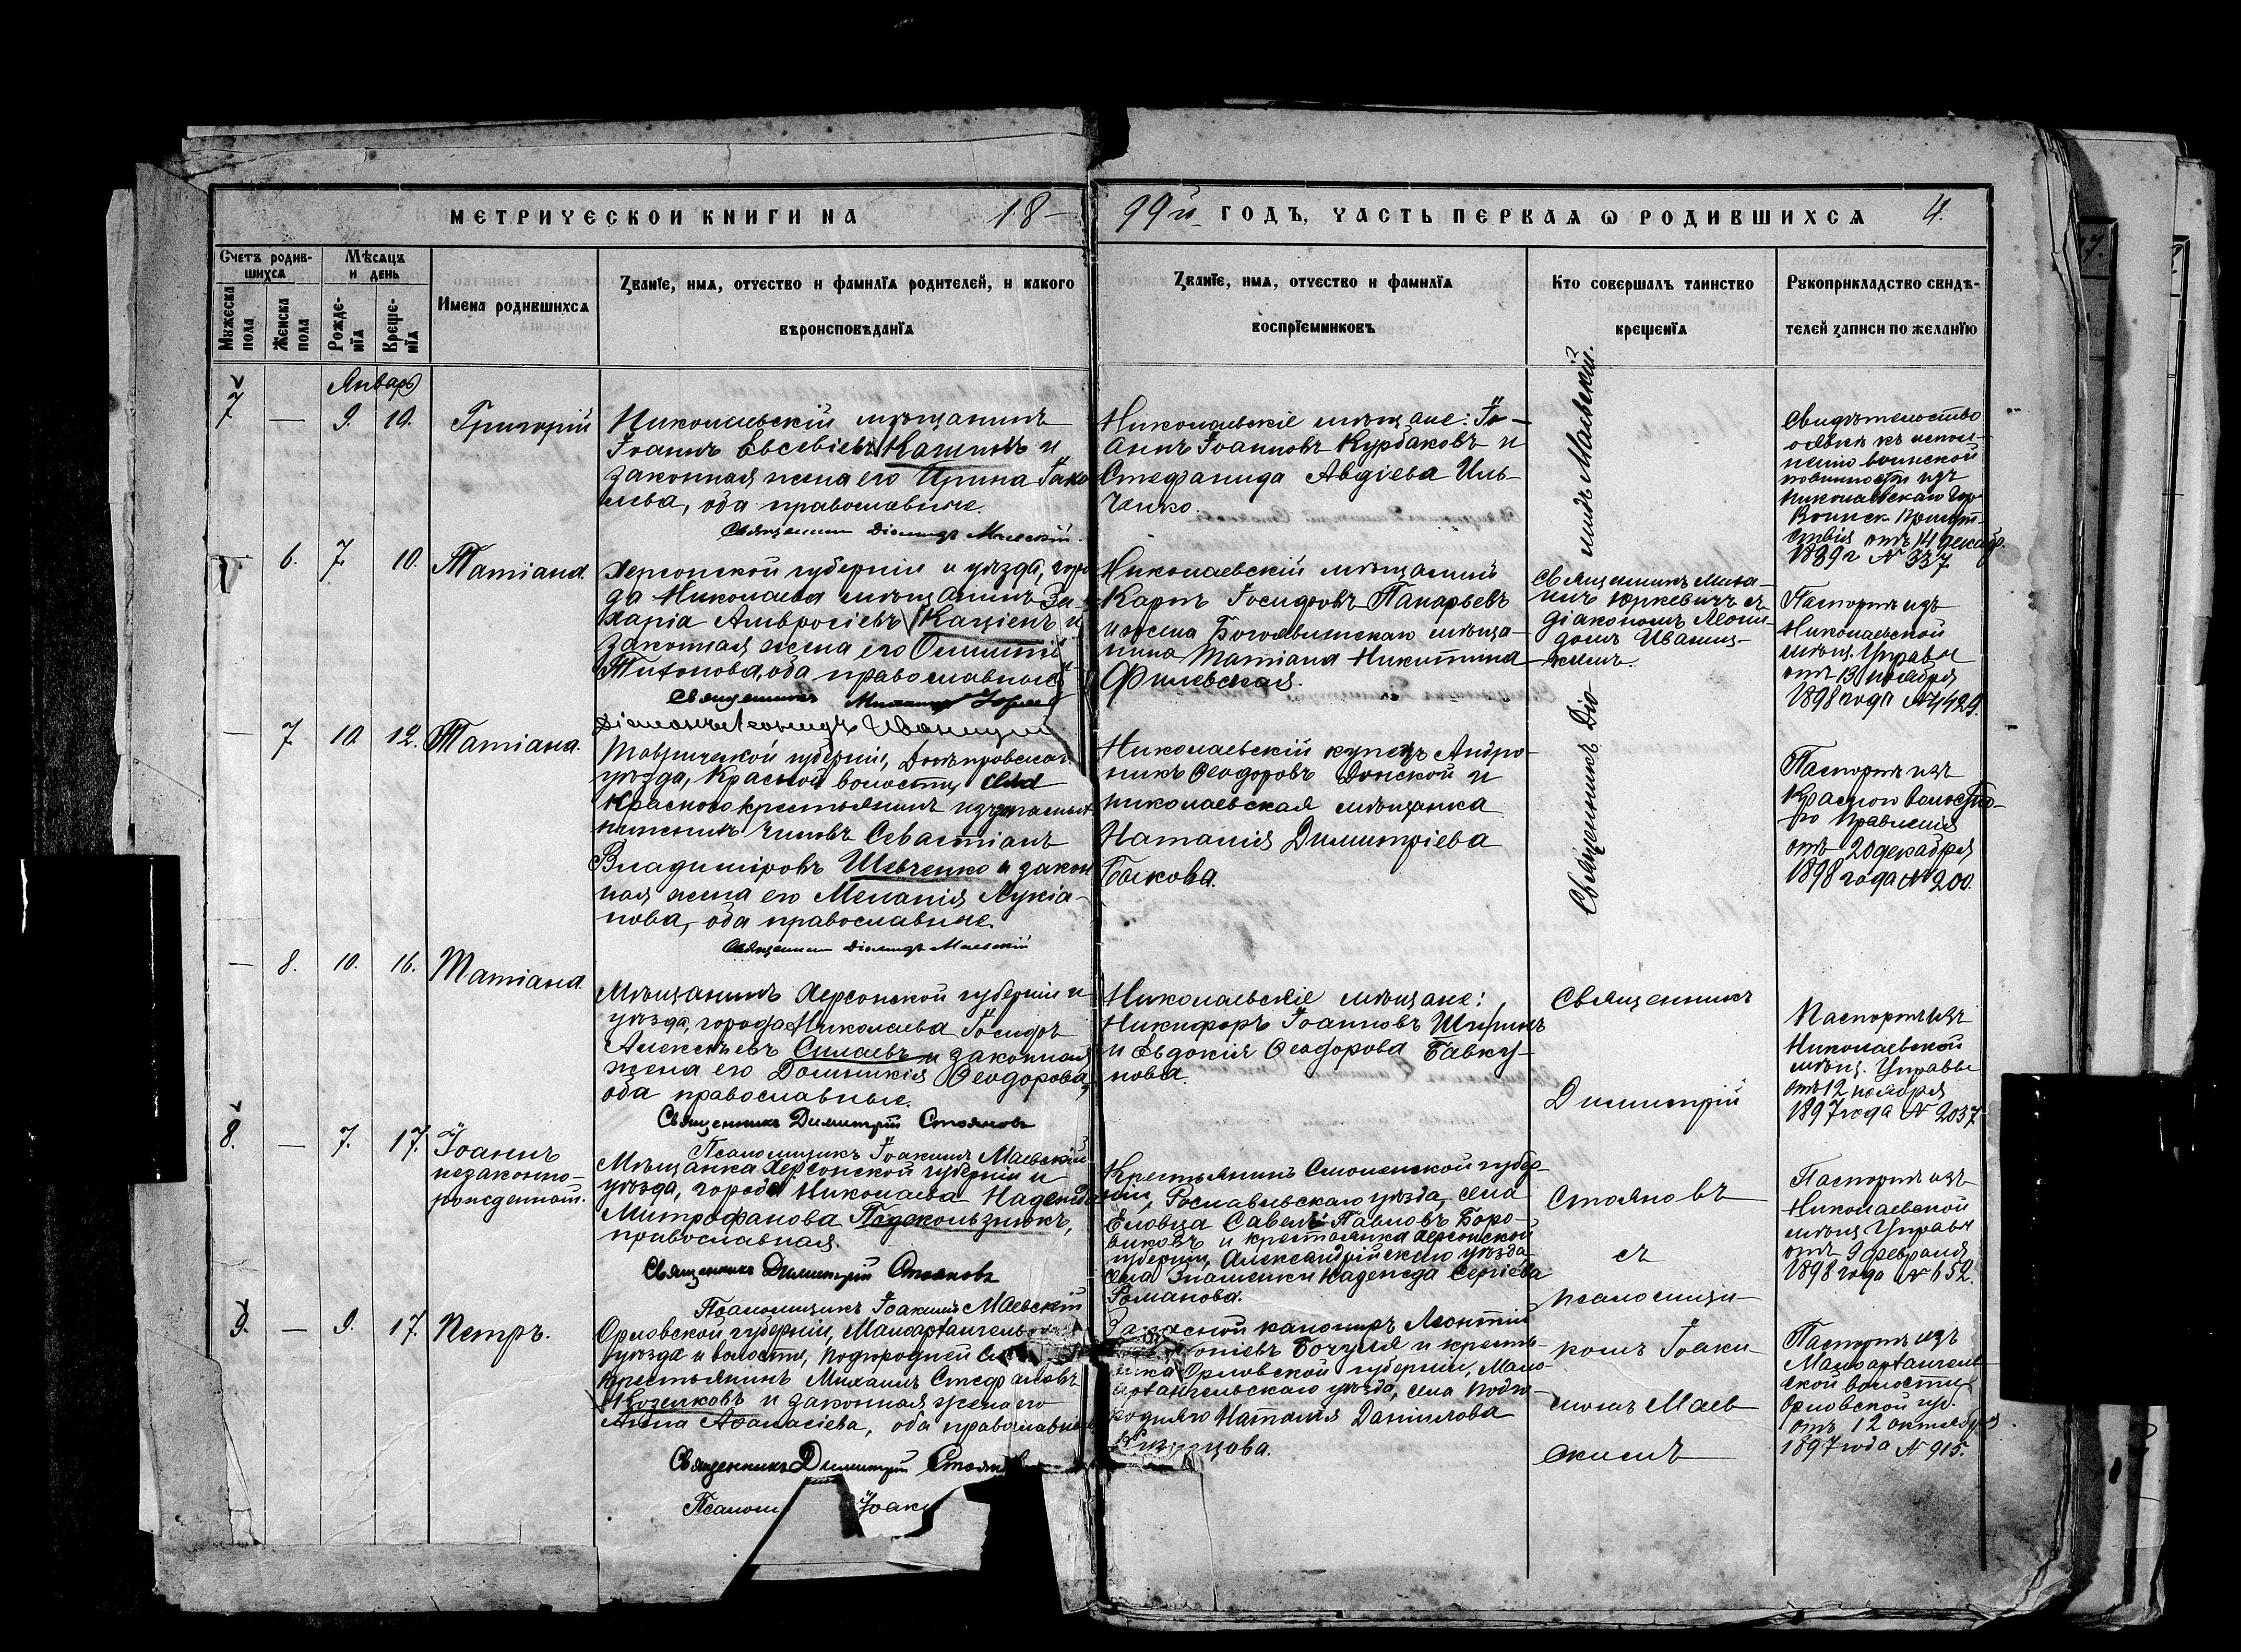 МЕТРИЧЕСКОЙ КНИГИ НА 18-
99й ГОДЪ, ЧАСТЬ ПЕРВАЯ Ѡ РОДИВШИХСЯ 4.
Счетъ родив-
шихся
Мѣсяцъ
и день
Мужеска
пола
Женска
пола
Рожде-
нїя
Креще-
нїя
Имена родившихся
Званїе, имя, отчество и фамилїя родителей, и какого
вѣроисповѣданїя
Званїе, имя, отчество и фамилїя
воспрїемниковъ
Кто совершалъ таинство
крещенїя
Рукоприкладство свидѣ-
телей записи по желанїю
Январь
7 — 9. 10. Григорій
Николаевскій мѣщанинъ
Іоаннъ Евсевіевъ и
законная жена его Ирина Іако
влева, оба православные.
Священникъ Діомидъ Маевскій.
Николаевскіе мѣщане: Іо-
аннъ Іоанновъ Курбаковъ и
Стефанида Авдіева Иль-
ченко.
Священникъ Діо-
мидъ Маевскій.
Свидѣтельство
о явкѣ къ испол-
ненію воинской
повинности изъ
Николаевскаго Гор
Воинск. Присут-
ствія отъ 14 декабр.
1889 г № 337
6. 7. 10. Татіана.
Херсонской губерніи и уѣзда, горо
да Николаева мѣщанинъ За-
харія Амвросіевъ Кацієнъ и
законная жена его
Тихонова, оба православные
Священникъ
Діаконъ Леонидъ
Николаевскій мѣщанинъ
Карпъ Іосифовъ
и жена Богоявленскаго мѣща-
нина Татіана Никитина
Филевская.
Священникъ Миха-
илъ Юркевичъ съ
діакономъ Леони-
домъ Иваниц-
кимъ.
Паспортъ изъ
Николаевской
мѣщ. Управы
отъ 13 ноября
1898 года № 4429.
— 7. 10. 12. Татіана.
Таврической губерніи, Днѣпровскаго
уѣзда, Красной волости, села
Краснаго крестьянинъ изъ запасныхъ
нижнихъ чиновъ Севастіанъ
Владиміровъ Шевченко и закон
ная жена его Меланія Лукіа-
нова, оба православные.
Священникъ Діомидъ Маевскій
Николаевскій купецъ Андро
никъ Ѳеодоровъ Донской и
николаевская мѣщанка
Наталія Димитріева
Быкова.
Паспортъ изъ
Краснаго волостно-
го Правленія
отъ 20 декабря
1898 года № 200.
— 8. 10. 16. Татіана.
Мѣщанинъ Херсонской губерніи и
уѣзда, города Николаева Іосифъ
Алексѣевъ Силаевъ и законная
жена его Домникія Ѳеодорова,
оба православные.
Священникъ Димитрій Стояновъ
Псаломщикъ Іоакимъ Маевскій
Николаевскіе мѣщане:
Никифоръ Іоанновъ Ширинъ
и Евдокія Ѳеодорова Бавку-
нова.
Священникъ
Димитрій
Стояновъ
съ
псаломщи-
комъ Іоаки-
момъ Маев-
скимъ
Паспортъ изъ
Николаевской
мѣщ. Управы
отъ 12 ноября
1897 года № 2037
8. — 7. 17. Іоаннъ
незаконно-
рожденный.
Мѣщанка Херсонской губерніи и
уѣзда, города Николаева Надежда
Митрофанова Подскользнюкъ,
православная.
Священникъ Димитрій Стояновъ
Псаломщикъ Іоакимъ Маевскій
Крестьянинъ Смоленской губер-
ніи, Рославльскаго уѣзда, села
Еловца Савелій Павловъ Боро-
виковъ и крестьянка Херсонской
губерніи, Александрійскаго уѣзда
села Знаменки Надежда Сергіева
Романова.
Паспортъ изъ
Николаевской
мѣщ Управы
отъ 9 февраля
1898 года № 652.
9. — 9. 17. Петръ.
Орловской губерніи, Малоархангельскаго
уѣзда и волости, Подгородней
крестьянинъ Михаилъ Стефановъ
Козелковъ и законная жена его
Анна Аѳанасіева, оба православные
Священникъ Димитрій
Запасной канониръ Леонтій
Бочуля и кресть-
янка Орловской губерніи, Мало-
архангельскаго уѣзда, села Подго-
родняго Наталія Даніилова
Паспортъ изъ
Малоархангель-
ской волости,
Орловской губ.
отъ 12 октября
1897 года № 915.